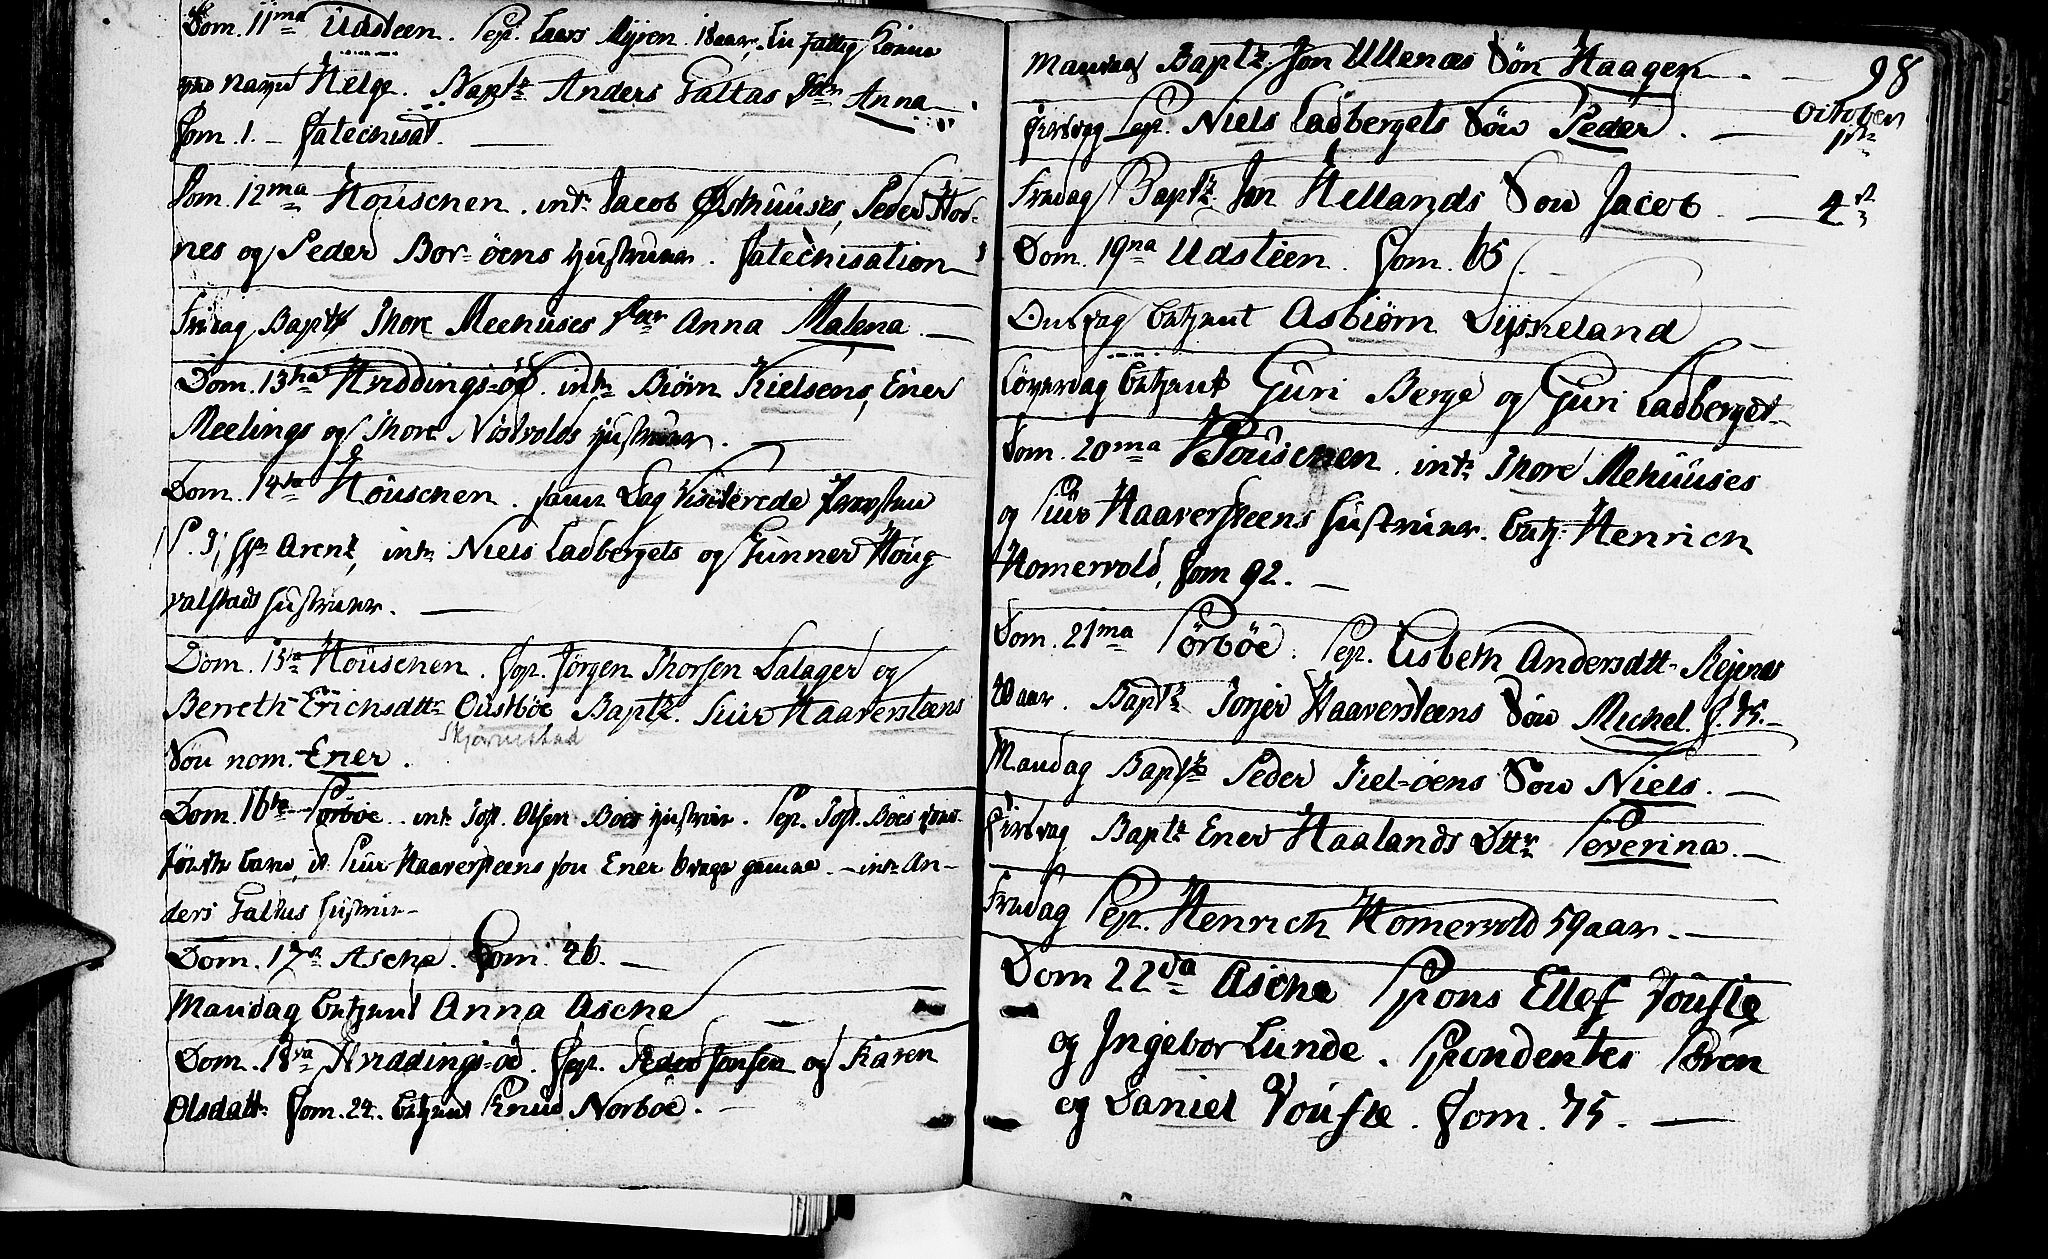 Dom. 11ma Udsteen. Sep. Lars Myren. 18 aar. En fattig Konne
ved nayn Helge. Bapt. Anders Galtas Datr Anna
Com. 1. – Catechisat.
Dom. 12ma Houschen. intr. Jacob Østhuuses, Peder Hod-
nes og Peder Bor-öens Hustruer. Catechisation
Fredag Bapt Thore Meehuses Datr Anna Malena
Dom. 13tia Hviddings-öe. intr. Biørn Kielsens, Ener
Meelings og Thore Nistvolds Hustruer.
Dom. 14ta Houschen. samme Dag Visiterede Provsten
S. T. Hr. Arent, intr. Niels Ladbergets og Gunner Houg
valstads Hustruer.
Dom. 15ta Houschen. Cop. Jørgen Thorsen Salager og
Bereth Erichsdttr Oustböe Baptz. Siur Haaversteens
Skjørnestad
Søn nom. Ener.
Dom. 16ta Sörböe. intr. Jost. Olsen Böes Hustrue. Sep. Jost. Böes
barn, it. Siur Haaversteens søn Ener gamle. – intr. An-
ders Galtus Hustrue
Dom. 17a Asche. Com. 46.
Mandag betient Anna Asche
Dom. 18va Hviddings-öe. Cop. Peder Jonsen og Karen
Olsdattr. Com. 24. betient Knud Norböe.
98
Mandag Baptz. Jon Ullenæs Søn Haagen.
October
Tirsdag Sep. Niels Ladbergets Søn Peder. 1ste
Fredag Bapt. Jon Hellands Søn Jacob. 4de
Dom. 19na Udsteen. Com. 65.
Onsdag betient Asbiørn Dysjeland
Løverdag betient Guri Berge og Guri Ladberget
Dom. 20ma Houschen. intr. Thore Mehuuses
og Siur Haaversteens Hustruer. betj. Henrich
Homervold, Com 92.
Dom. 21ma Sörböe. Sep. Lisbeth Andersdttr Rejenes
aar. Baptz Torjer Haaversteens Søn Michel. C. 75.
Mandag Baptz Peder Kiel-öens Søn Niels.
Tirsdag Baptz Ener Haalands Dttr Severina.
Fredag Sep. Henrich Homervold 59 aar.
Dom 22da Asche Spons Ellef Vouste
og Ingebor Lunde. Spondentes Sören
og Daniel Vouste. Com. 75.